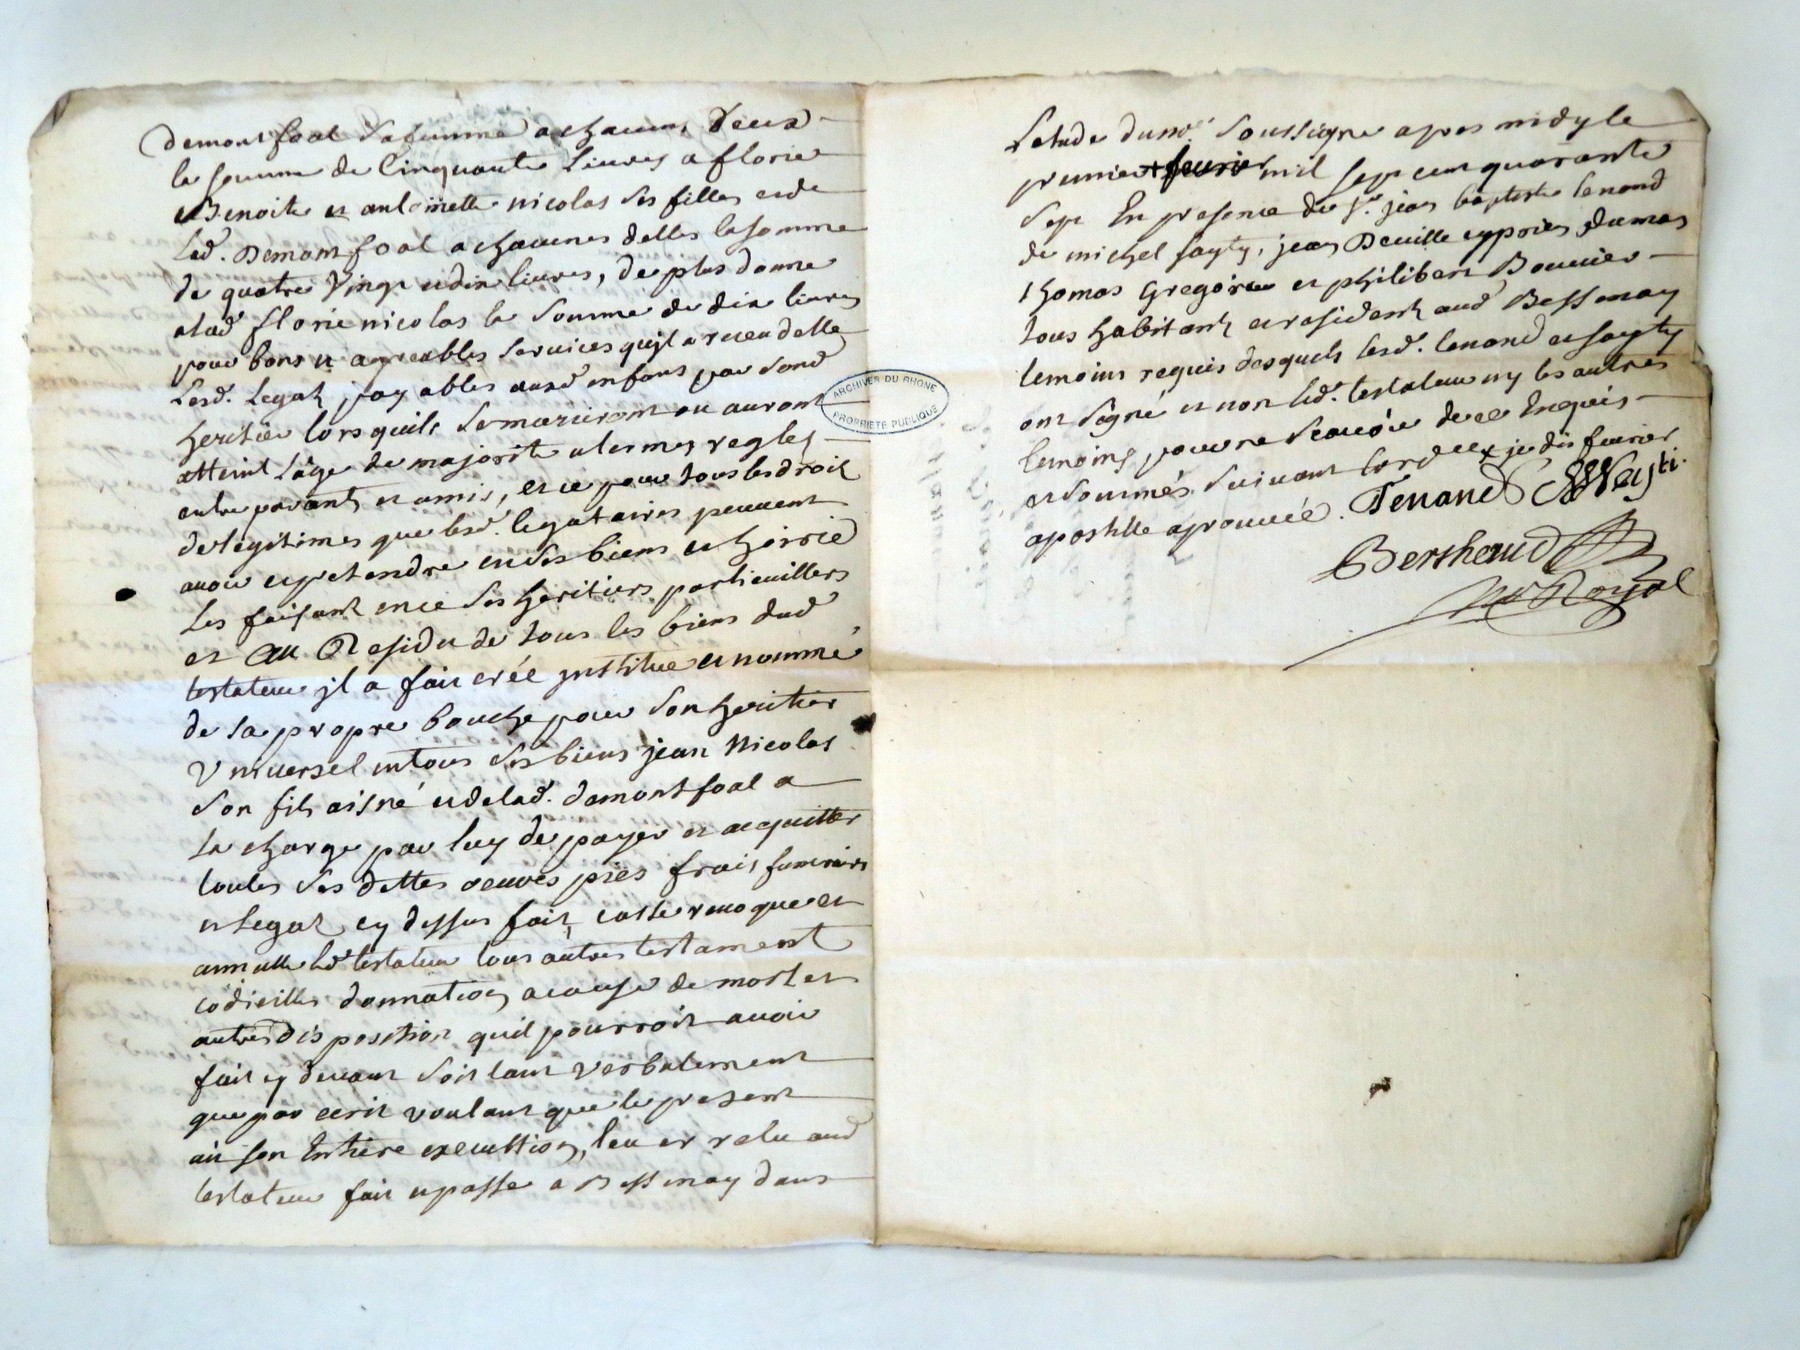 demontfoal sa femme a chacun d'eux
la somme de Cinquante Livres a florie
et Benoite et antoinette nicolas ses filles et de
Lad. Demontfoal a chacunes delles la somme
de quatre Vingt et dix livres, de plus donne
a lad. florie nicolas la somme de dix livres
pour bons et agreables services qu'jl a receu delle
Lesd. Legatz payables ausd enfans par sond
heritier lorsquils se marieront ou auront
atteint l'âge de majorité a termes reglés
entre parants et amis, et ce pour tous les droit
de legitimes que lesd. legataires peuvent
avoir et pretendre en ses biens et hoirie
Les faisant en ce ses heritiers particuillers
et Au Residu de tous les biens dud
testateur jl a fait créé jnstitue et nommé
de sa propre bouche pour son heritier
Vniversel en tous ses biens jean Nicolas
son fils aisné et de lad. demontfoal a
La charge par luy de payer et acquitter
toutes ses dettes oeuvres pies frais funeraires
et legatz cy dessus fait, casse revoque et
annulle led testateur tous autres testament
codicilles donnation a cause de mort et
autres disposition quil pourroit avoir
fait cy devant soit tant verbalement
que par ecrit voulant que le present
ait son Entiere executtion, leu et relu aud
testateur fait et passe a Bessenay dans
Letude du no.re soussigne apres midy le
premier + fevrier mil sept cent quarante
sept En presence de sr. jean baptiste tenand
de michel sayty, jean Deville cyprien dumas
thomas Gregoire et philibert Bouvier
tous habitantz et residents aud Bessenay
temoins requis desquels lesd. tenand et sayty
ont signé et non led. testateur ny les autres
temoins pour ne scavoir de ce Enquis
et sommés suivant lordce x je dis fevrier
apostille aprouvée. Tenand Sayti.
Berthaud
no.re Royal
ARCHIVES DU RHONE
PROPRIETE PUBLIQUE